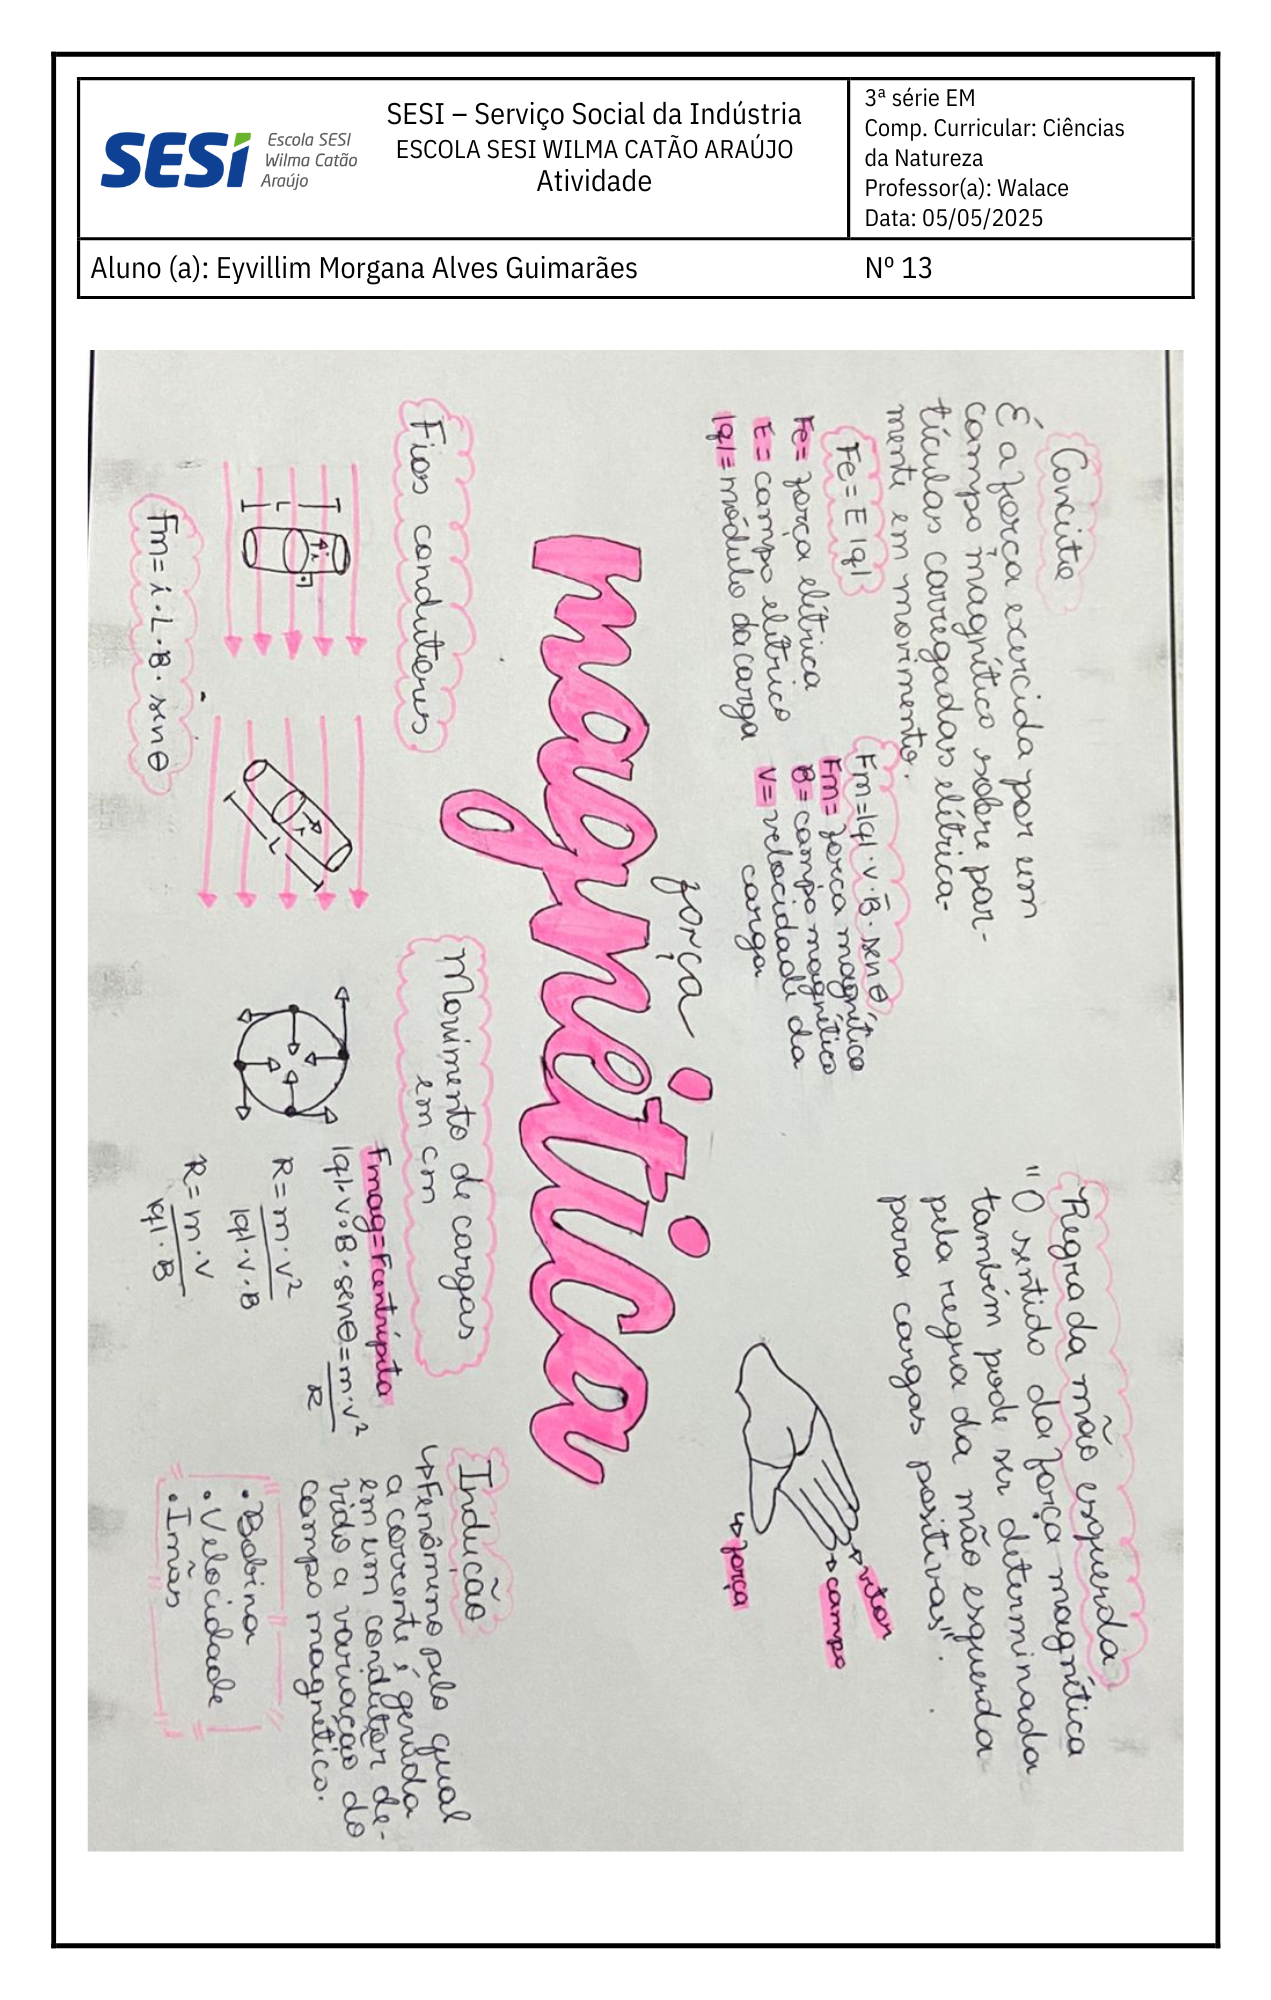 SESI
Escola SESI
Wilma Catão
Araújo
SESI – Serviço Social da Indústria
ESCOLA SESI WILMA CATÃO ARAÚJO
Atividade
3ª série EM
Comp. Curricular: Ciências
da Natureza
Professor(a): Walace
Data: 05/05/2025
Aluno (a): Eyvillim Morgana Alves Guimarães
Nº 13
Conceito
É a força exercida por um
campo magnético sobre par-
tículas carregadas elétrica-
mente em movimento.
Fe = E |q|
Fe = força elétrica
E = campo elétrico
|q| = módulo da carga
Fm = |q| . v . B . senθ
Fm = força magnética
B = campo magnético
V = velocidade da
carga
Regra da mão esquerda
"O sentido da força magnética
também pode ser determinada
pela regra da mão esquerda
para cargas positivas".
vitor
campo
força
força
magnética
Fios condutores
L
i
L
i
Fm = i . L . B . senθ
Movimento de cargas
em cm
Fmag = Fcentrípeta
|q| . v . B . senθ = m . v²
R
R = m . v²
|q| . v . B
R = m . v
|q| . B
Indução
↳ Fenômeno pelo qual
a corrente é gerida
em um condutor de-
vido a variação do
campo magnético.
• Bobina
• Velocidade
• Imãs